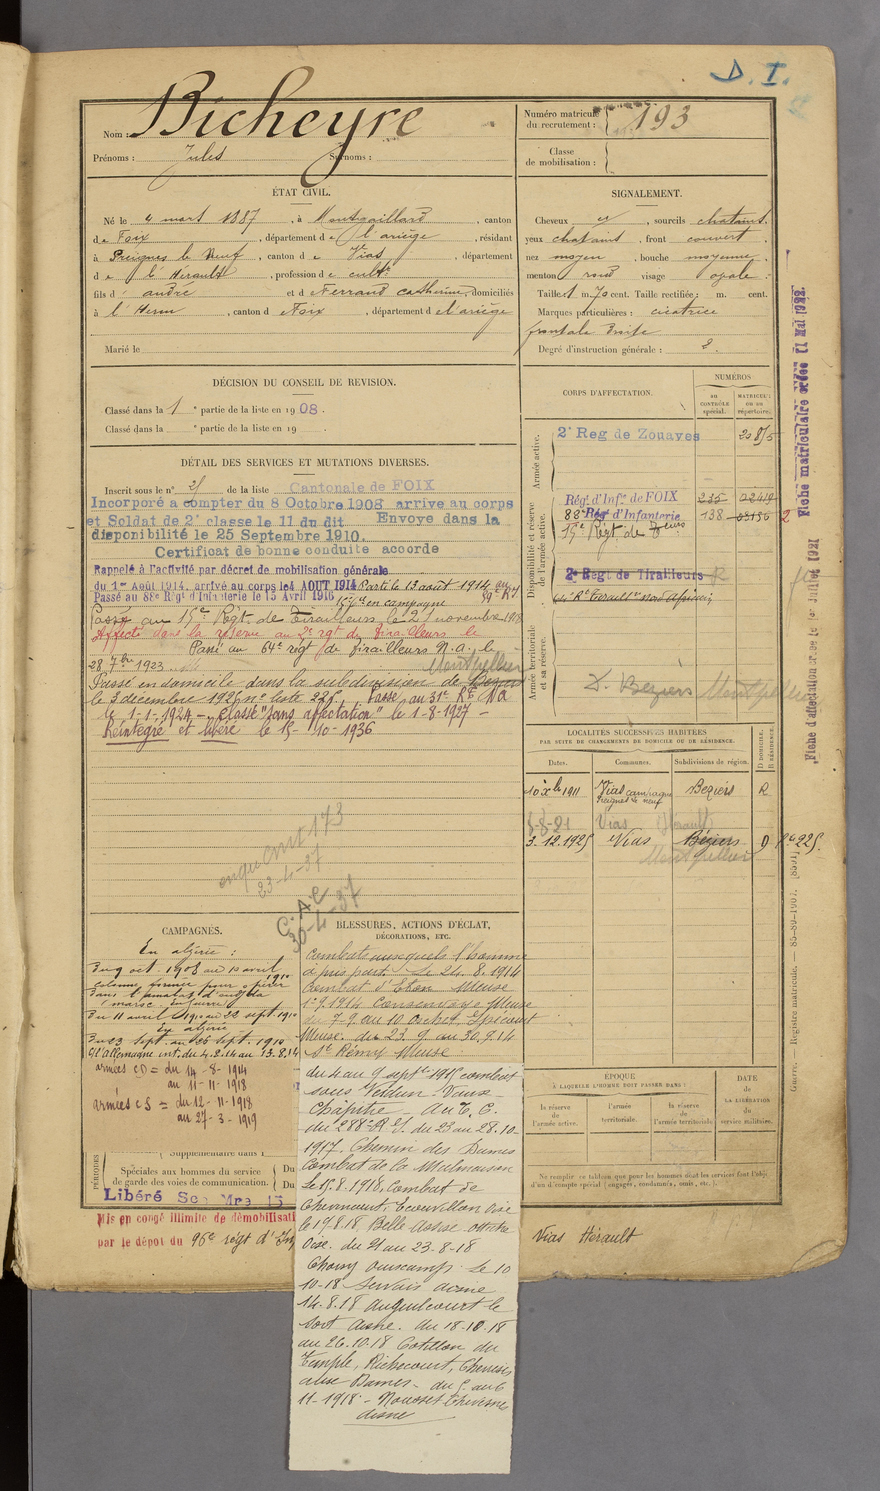 D. I.
Nom : Bicheyre
Prénoms : Jules Surnoms :
Numéro matricule du recrutement : 193
Classe de mobilisation :
ÉTAT CIVIL.
Né le 4 mars 1887, à Montgaillard, canton
de Foix, département de l'ariège, résidant
à Preignes le Neuf, canton de Vias, département
de l'Hérault, profession de cultr
fils d' andré et de Ferrand Catherine, domiciliés
à l'Herm, canton de Foix, département de l'ariège
Marié le
SIGNALEMENT.
Cheveux et, sourcils chatains.
yeux chatains, front couvert.
nez moyen, bouche moyenne.
menton rond visage ovale.
Taille 1 m. 70 cent. Taille rectifiée : m. cent.
Marques particulières : cicatrice
frontale droite
Degré d'instruction générale : 2.
DÉCISION DU CONSEIL DE REVISION.
Classé dans la 1e partie de la liste en 1908.
Classé dans la e partie de la liste en 19 .
DÉTAIL DES SERVICES ET MUTATIONS DIVERSES.
Inscrit sous le n° de la liste Cantonale de FOIX
Incorporé a compter du 8 Octobre 1908 arrive au corps
et Soldat de 2e classe le 11 du dit Envoye dans la
disponibilité le 25 Septembre 1910.
Certificat de bonne conduite accorde
Rappelé à l'activité par décret de mobilisation générale
du 1er Août 1914, arrivé au corps le 4 AOUT 1914 Parti le 13 août 1914 au
Passé au 88e Régt d'Infanterie le 15 Avril 1916 en campagne
Passé au 15e Régt. de Tirailleurs le 21 novembre 1918
Affecté dans la réserve au 2e rgt de Tirailleurs le
Passé au 64e régt de Tirailleurs N.a. le
28 7bre 1923
Montpellier
Passé en domicile dans la subdivision de Béziers
le 3 décembre 1925 n° liste 225. Passé au 31e Rt Na
le 1-1-1924 - Classé "sans affectation" le 1-8-1927 -
Réintégré et libéré le 15-10-1936
enquênt 173
23-4-37
C.A.C
30-4-37
CORPS D'AFFECTATION.
NUMÉROS
AU CONTRÔLE spécial.
MATRICULE OU AU répertoire.
Armée active.
2e Reg de Zouaves
Disponibilité et réserve de l'armée active.
Régt d'Infie de FOIX 235 02419
88e Régt d'Infanterie 138 03156
15e Régt. de Tirailleurs
2e Regt de Tirailleurs
Armée territoriale et sa réserve.
D. Beziers Montpellier
LOCALITÉS SUCCESSIVES HABITÉES
PAR SUITE DE CHANGEMENTS DE DOMICILE OU DE RÉSIDENCE.
Dates. Communes. Subdivisions de région. D DOMICILE. R RÉSIDENCE.
10 Xbre 1911 Vias campagne Preignes le neuf Beziers R
8-8-21 Vias Hérault
3.12.1925 Vias Béziers D No 225.
Montpellier
Fiche matriculaire créée 11 Mai 1922.
Fiche d'affectation créée le 1er Juillet 1921
Guerre. — Registre matricule. — 85-80-1907. [8591]
CAMPAGNES.
En algérie :
Du 9 oct. 1908 au 10 avril 1910
colonne formée pour opérer
dans l'amalat d'oudjda
(maroc) En guerre
Du 11 avril 1910 au 22 sept. 1910
En algérie
Du 23 sept. au 25 sept. 1910
C/ l'Allemagne int. du 4.8.14 au 13.8.14
armées CD = du 14-8-1914
au 11-11-1918
armées CS = du 12-11-1918
au 27-3-1919
BLESSURES, ACTIONS D'ÉCLAT,
DÉCORATIONS, ETC.
Combats auxquels l'homme
a pris part. Le 24.8.1914
Combat d'Etain Meuse
1-9.1914 Consenvoye Meuse
du 7-9 au 10 Oschet, Ippécourt
Meuse. du 23.9. au 30.9.14
St Rémy Meuse
du 4 au 9 septbre 1915 combat
sous Verdun - Vaux
Chapitre - Au T.C.
du 288e R.I. du 23 au 28.10.
1917. Chemin des Dames
Combat de la Malmaison
Le 15.8.1918, Combat de
Chevincourt, Ecouvillon Oise
le 17.8.18, Belle Assise
Oise. du 21 au 23-8-18
Choisy Ourscamp. Le 10
10-18 Servais aisne
14-8.18 Anguilcourt le
Sart Aisne. du 18-10-18
au 26.10.18 Cotillon du
Temple, Richecourt, Chevresis
aux Dames - du 5 au 6
11-1918 - Monceau Chevresis
aisne
ÉPOQUE
À LAQUELLE L'HOMME DOIT PASSER DANS :
la réserve de l'armée active. l'armée territoriale. la réserve de l'armée territoriale.
DATE DE LA LIBÉRATION du service militaire.
Ne remplir ce tableau que pour les hommes dont les services font l'objet
d'un compte spécial (engagés, condamnés, omis, etc.).
PÉRIODES
Supplémentaire dans l
Spéciales aux hommes du service Du
de garde des voies de communication. Du
Libéré Ser Mre 15
Mis en congé illimité de démobilisati
par le dépot du 96e régt d'Inf Vias Hérault